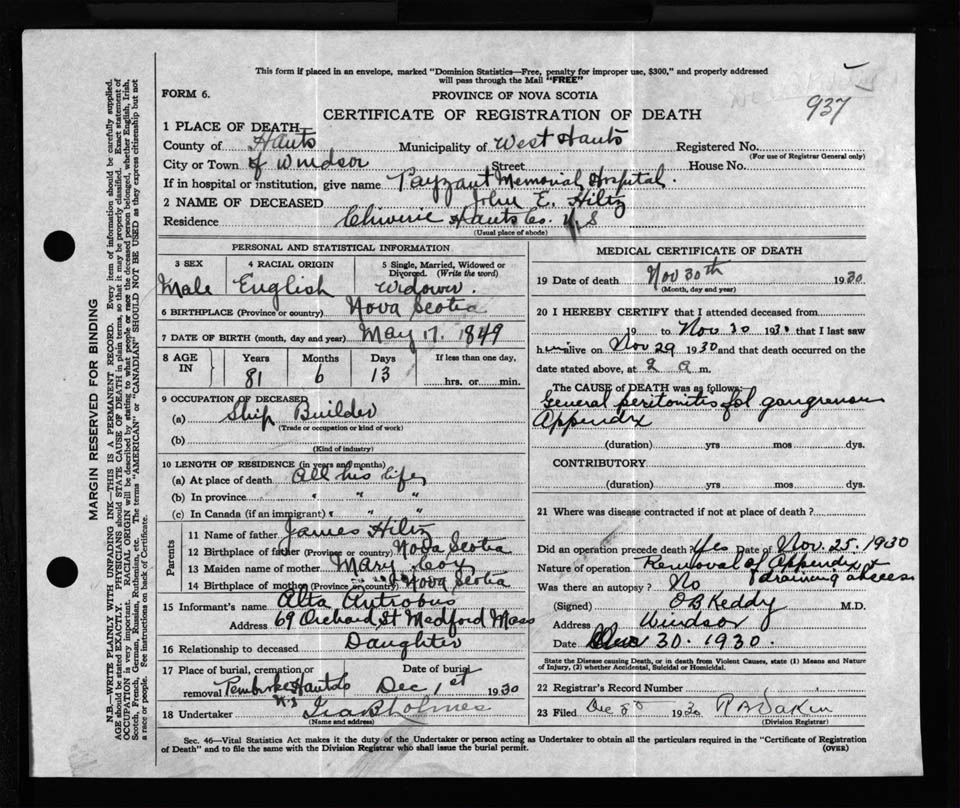 This form if placed in an envelope, marked "Dominion Statistics—Free, penalty for improper use, $300," and properly addressed
will pass through the Mail "FREE"
937
FORM 6.
PROVINCE OF NOVA SCOTIA
CERTIFICATE OF REGISTRATION OF DEATH
1 PLACE OF DEATH—
County of Hants Municipality of West Hants Registered No.
(For use of Registrar General only)
City or Town of Windsor Street House No.
If in hospital or institution, give name Payzant Memorial Hospital.
2 NAME OF DECEASED John E. Hiltz
Residence Chiverie Hants Co. N S
(Usual place of abode)
PERSONAL AND STATISTICAL INFORMATION
3 SEX
Male
4 RACIAL ORIGIN
English
5 Single, Married, Widowed or
Divorced. (Write the word)
Widower.
6 BIRTHPLACE (Province or country) Nova Scotia
7 DATE OF BIRTH (month, day and year) May 17. 1849
8 AGE IN
Years Months Days If less than one day,
81 6 13 hrs. or min.
9 OCCUPATION OF DECEASED
(a) Ship Builder
(Trade or occupation or kind of work)
(b)
(Kind of industry)
10 LENGTH OF RESIDENCE (in years and months)
(a) At place of death All his life
(b) In province " " "
(c) In Canada (if an immigrant) " " "
Parents
11 Name of father James Hiltz
12 Birthplace of father (Province or country) Nova Scotia
13 Maiden name of mother Mary Coy
14 Birthplace of mother (Province or country) Nova Scotia
15 Informant's name Alta Antrobus
Address 69 Orchard St Medford Mass
16 Relationship to deceased Daughter
17 Place of burial, cremation or removal Pembroke Hants N.S
Date of burial Dec 1st 1930
18 Undertaker Ira B Holmes
(Name and address)
MEDICAL CERTIFICATE OF DEATH
19 Date of death Nov 30th 1930
(Month, day and year)
20 I HEREBY CERTIFY that I attended deceased from
19 to Nov 30 1930 that I last saw
him alive on Nov 29 1930 and that death occurred on the
date stated above, at 2 a m.
The CAUSE OF DEATH was as follows:
General peritonitis fol gangrenous
Appendix
(duration) yrs mos dys.
CONTRIBUTORY
(duration) yrs mos dys.
21 Where was disease contracted if not at place of death?
Did an operation precede death? Yes Date of Nov. 25. 1930
Nature of operation Removal of Appendix &
draining abcess
Was there an autopsy? No
(Signed) O B Keddy M.D.
Address Windsor
Date 30. 1930.
State the Disease causing Death, or in death from Violent Causes, state (1) Means and Nature
of Injury, (2) whether Accidental, Suicidal or Homicidal.
22 Registrar's Record Number
23 Filed Dec 1930
(Division Registrar)
Sec. 46—Vital Statistics Act makes it the duty of the Undertaker or person acting as Undertaker to obtain all the particulars required in the "Certificate of Registration
of Death" and to file the same with the Division Registrar who shall issue the burial permit.
(OVER)
MARGIN RESERVED FOR BINDING
N.B—WRITE PLAINLY WITH UNFADING INK—THIS IS A PERMANENT RECORD. Every item of information should be carefully supplied.
AGE should be stated EXACTLY. PHYSICIANS should STATE CAUSE OF DEATH in plain terms, so that it may be properly classified. Exact statement of
OCCUPATION is very important. RACIAL ORIGIN will be described by stating to what people or race the deceased person belonged, whether English, Irish,
Scotch, French, German, Russian, Ruthenian, etc. The terms "AMERICAN" or "CANADIAN" SHOULD NOT BE USED as they express citizenship but not
a race or people. See instructions on back of Certificate.